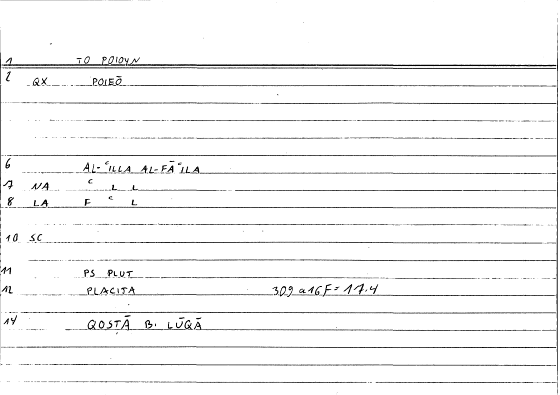 1 TO POIOYN
2 QX POIEŌ
6 AL-ʿILLA AL-FĀʿILA
7 NA ʿ L L
8 LA F ʿ L
10 SC
11 PS PLUT
12 PLACITA 309 a16F = 17.4
14 QOSṬĀ B. LŪQĀ